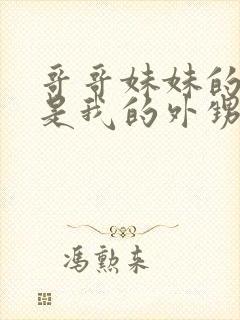 哥哥妹妹的
是我的外甥
冯勲来